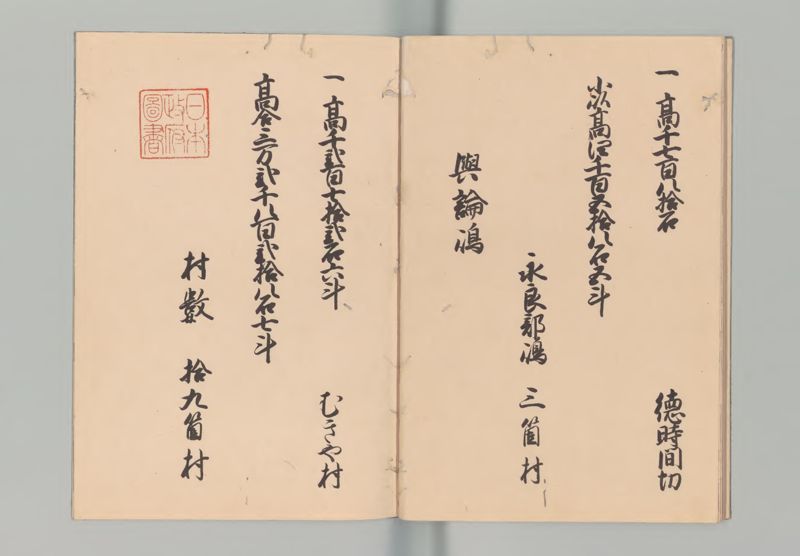 一 高千七百八拾石 徳時間切
小以高四千百五拾八石五斗
永良部嶋 三箇村
與論嶋
一 高千弐百七拾弐石六斗 むきや村
高合三万弐千八百弐拾八石七斗
村数 拾九箇村
日本
政府
圖書